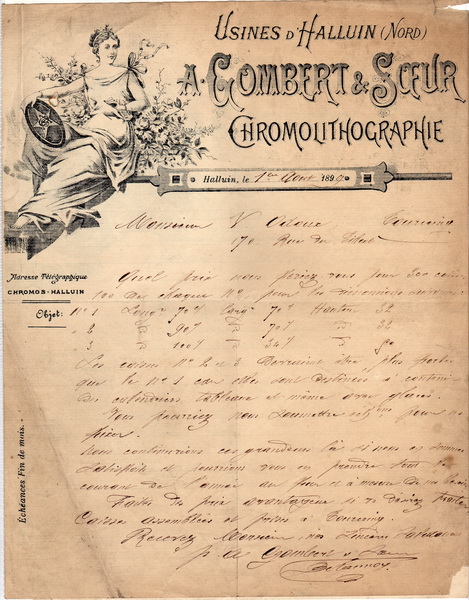 USINES D'HALLUIN (NORD)
A. GOMBERT & SŒUR
CHROMOLITHOGRAPHIE
Halluin, le 1er Août 189
Monsieur V Tourcoing
170 Rue du
Adresse Télégraphique
CHROMOS-HALLUIN
Objet:
Quel prix nous feriez vous pour 300 caisses
100 de chaque No, pour les dimensions suivantes
No 1 Longr 70% Largr 70% Hauteur 32
" 2 90% 70% 32
" 3 100%
Les caisses No 2 et 3 devraient être plus fortes
que le No 1 car elles sont destinées à contenir
des calendriers tableaux et même avec glaces.
Vous pourriez nous soumettre pour ces
Nous continuerions ces grandeurs là si nous en sommes
satisfaits et pourrions vous en prendre tout le
courant de l'année au fur et à mesure de nos besoins
Faites des prix avantageux si vs désirez traiter
Caisses assemblées et prises à Tourcoing
Recevez Monsieur, nos sincères salutations
p. A Gombert & Sœur
Echéances Fin de mois.